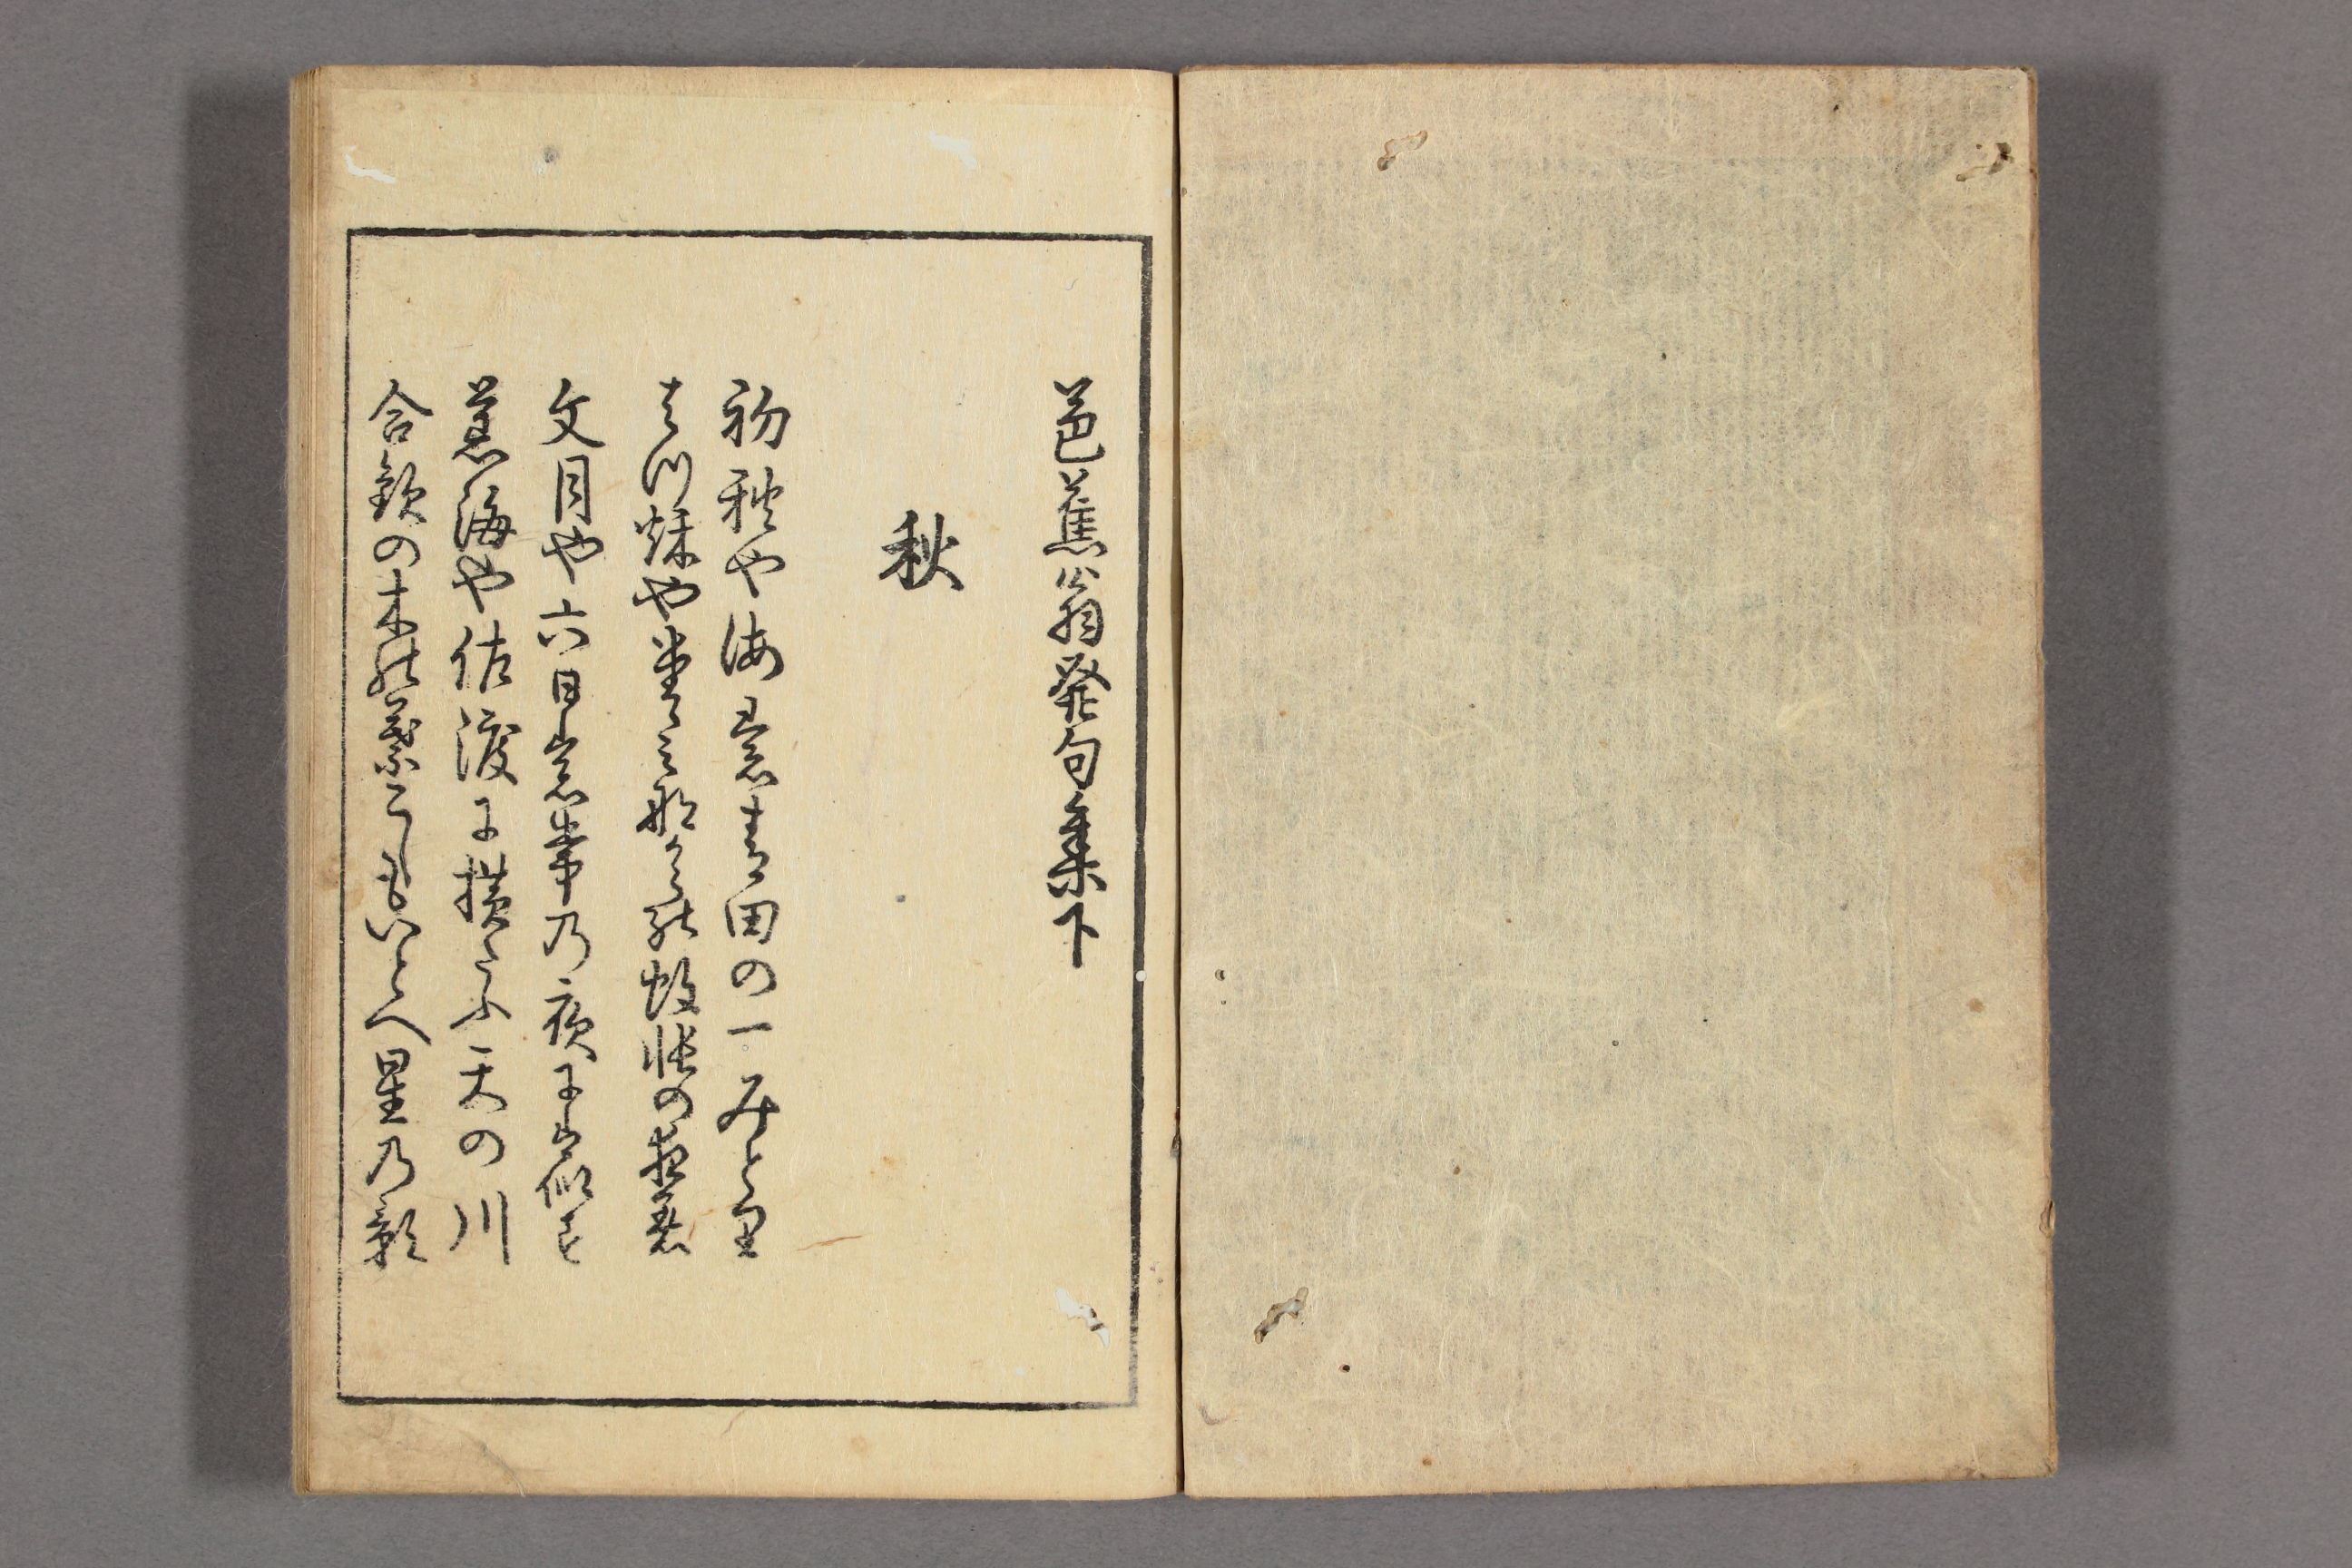 芭蕉翁発句集下
秋
初秋や海も青田の一みとり
はつ秋や畳みなからの蚊帳の夜着
文月や六日も常の夜には似す
荒海や佐渡に横たふ天の川
合歓の木の葉こしもいとへ星の影